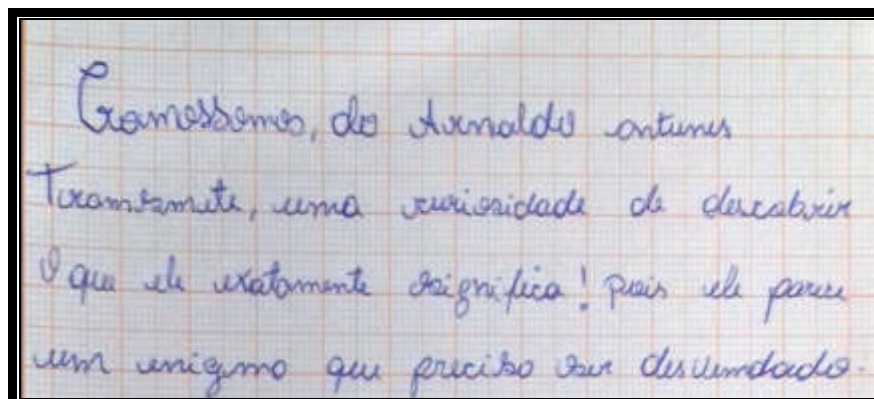 Cromossomos, do Arnaldo antunes
Transmite, uma curiosidade de descobrir
O que ele exatamente significa! pois ele parece
um enigma que precisa ser desvendado.